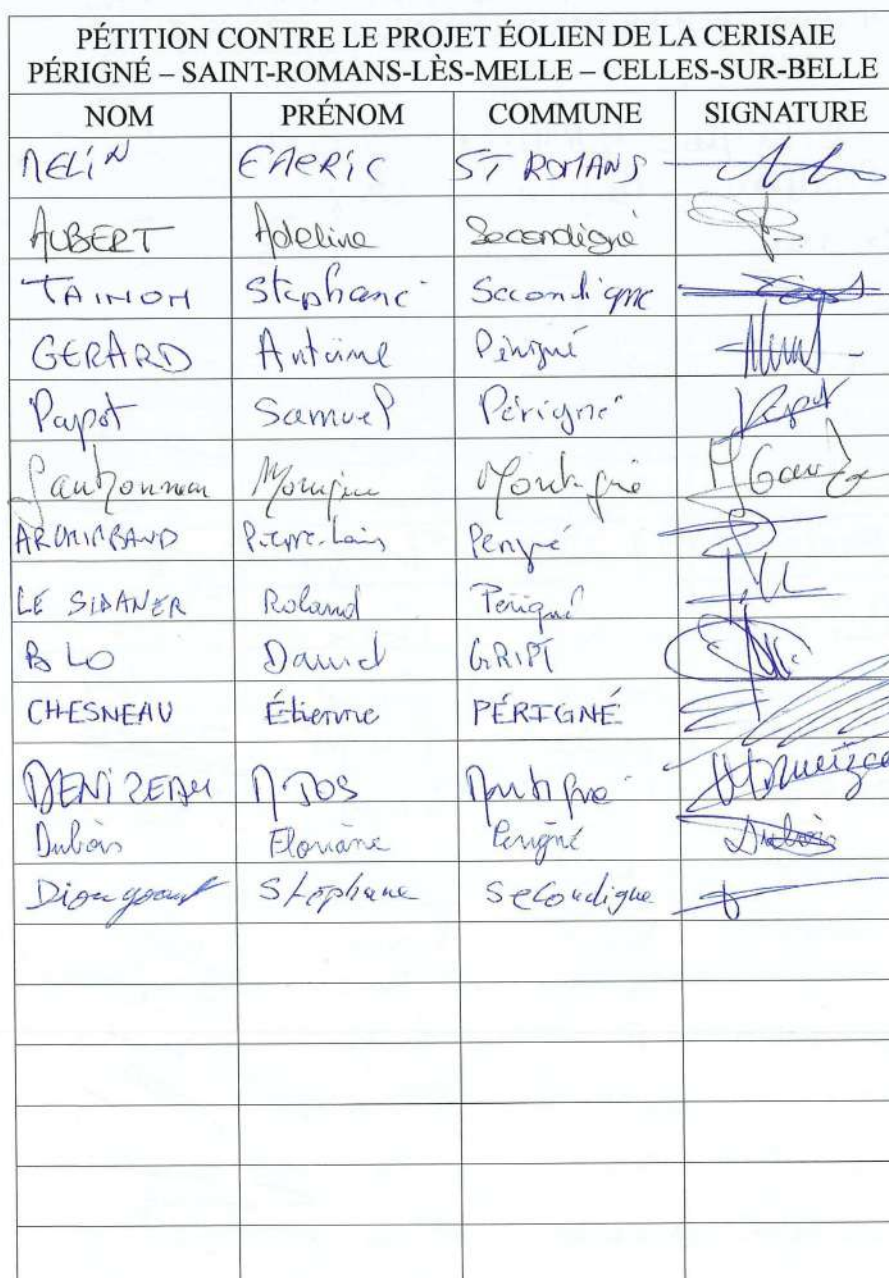 PÉTITION CONTRE LE PROJET ÉOLIEN DE LA CERISAIE
PÉRIGNÉ – SAINT-ROMANS-LÈS-MELLE – CELLES-SUR-BELLE
NOM PRÉNOM COMMUNE SIGNATURE
MELIN ST ROMANS
AUBERT Adeline Secondigné
Stephane Secondigné
GERARD Antoine Périgné
Papot Samuel Périgné Papot
Montigné
Périgné
LE SIDANER Roland Périgné
BLO David GRIPT
CHESNEAU Étienne PÉRIGNÉ
DENIZEAU Montigné
Dubois Floriane Périgné Dubois
Stéphane Secondigné